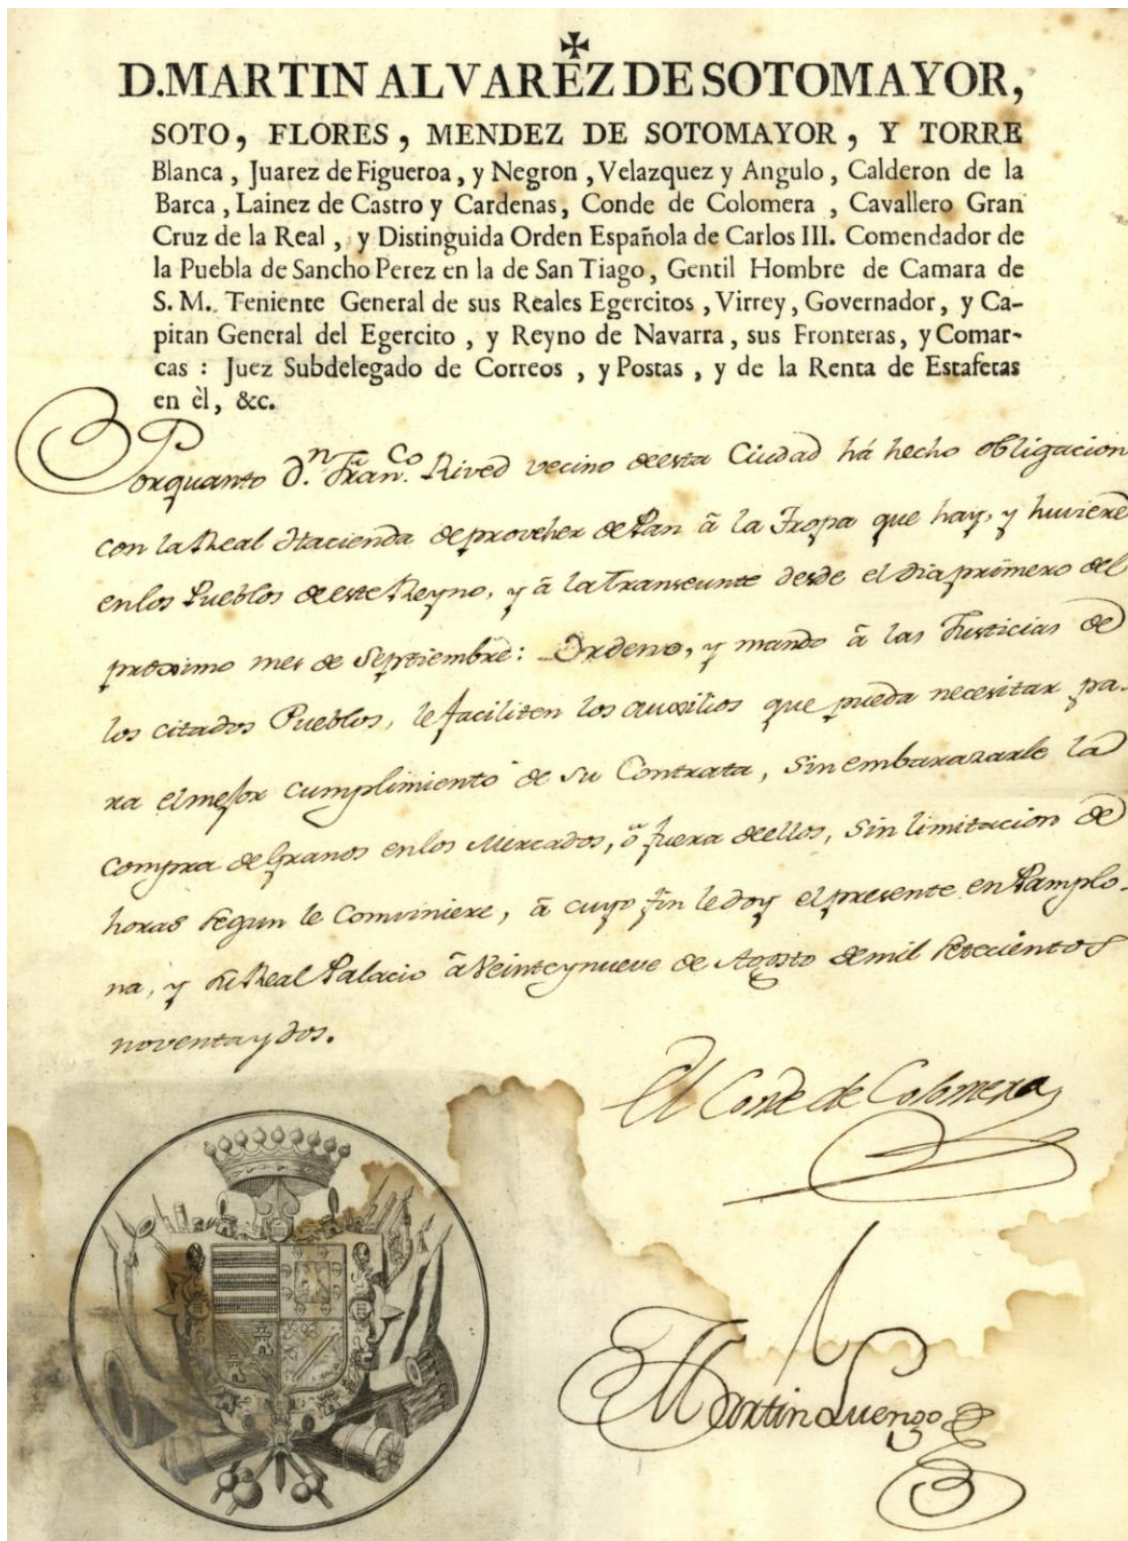 ✠
D. MARTIN ALVAREZ DE SOTOMAYOR,
SOTO, FLORES, MENDEZ DE SOTOMAYOR, Y TORRE
Blanca, Juarez de Figueroa, y Negron, Velazquez y Angulo, Calderon de la
Barca, Lainez de Castro y Cardenas, Conde de Colomera, Cavallero Gran
Cruz de la Real, y Distinguida Orden Española de Carlos III. Comendador de
la Puebla de Sancho Perez en la de San Tiago, Gentil Hombre de Camara de
S. M. Teniente General de sus Reales Egercitos, Virrey, Governador, y Ca-
pitan General del Egercito, y Reyno de Navarra, sus Fronteras, y Comar-
cas: Juez Subdelegado de Correos, y Postas, y de la Renta de Estafetas
en èl, &c.
Porquanto D.n Fran.co Rived vecino de esta Ciudad há hecho obligacion
con la Real Hacienda de proveher de Pan â la Tropa que hay, y huviere
en los Pueblos de este Reyno, y â la transeunte desde el dia primero del
proximo mes de Septiembre: Ordeno, y mando â las Justicias de
los citados Pueblos, le faciliten los auxilios que pueda necesitar pa-
ra el mejor cumplimiento de su Contrata, sin embarazarle la
compra de Granos en los Mercados, ô fuera de ellos, sin limitacion de
horas segun le combiniere, â cuyo fin le doy el presente en Pamplo-
na, y su Real Palacio â Veinte y nueve de Agosto de mil setecientos
noventa y dos.
El Conde de Colomera
Martin Luengo